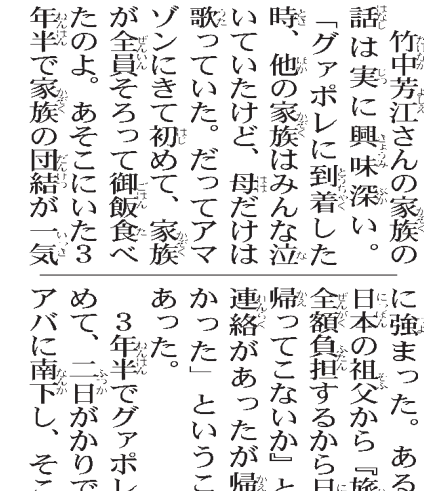 竹中芳江さんの家族の
話は実に興味深い。
「グァポレに到着した
時、他の家族はみんな泣
いていたけど、母だけは
歌っていた。だってアマ
ゾンにきて初めて、家族
が全員そろって御飯食べ
たのよ。あそこにいた3
年半で家族の団結が一気
に強まった。ある
日本の祖父から『旅
全額負担するから日
帰ってこないか』と
連絡があったが帰
かった」というこ
あった。
3年半でグァポレ
めて、二日がかりで
アバに南下し、そこ